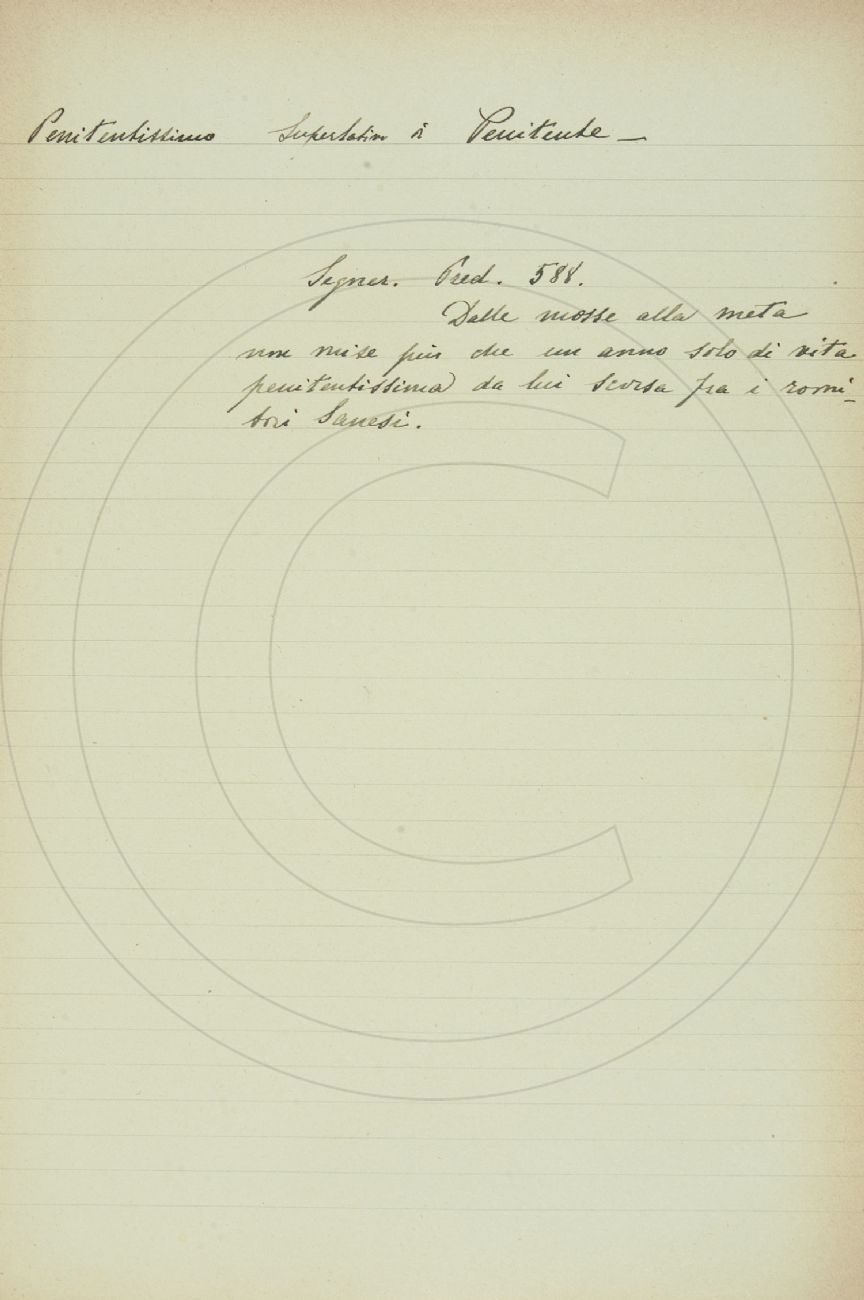 Penitentissimo Superlativ di Penitente —
Segner. Pred. 588.
Dalle mosse alla meta
non mise più che un anno solo di vita
penitentissima da lui scorsa fra i romi-
tori Sanesi.